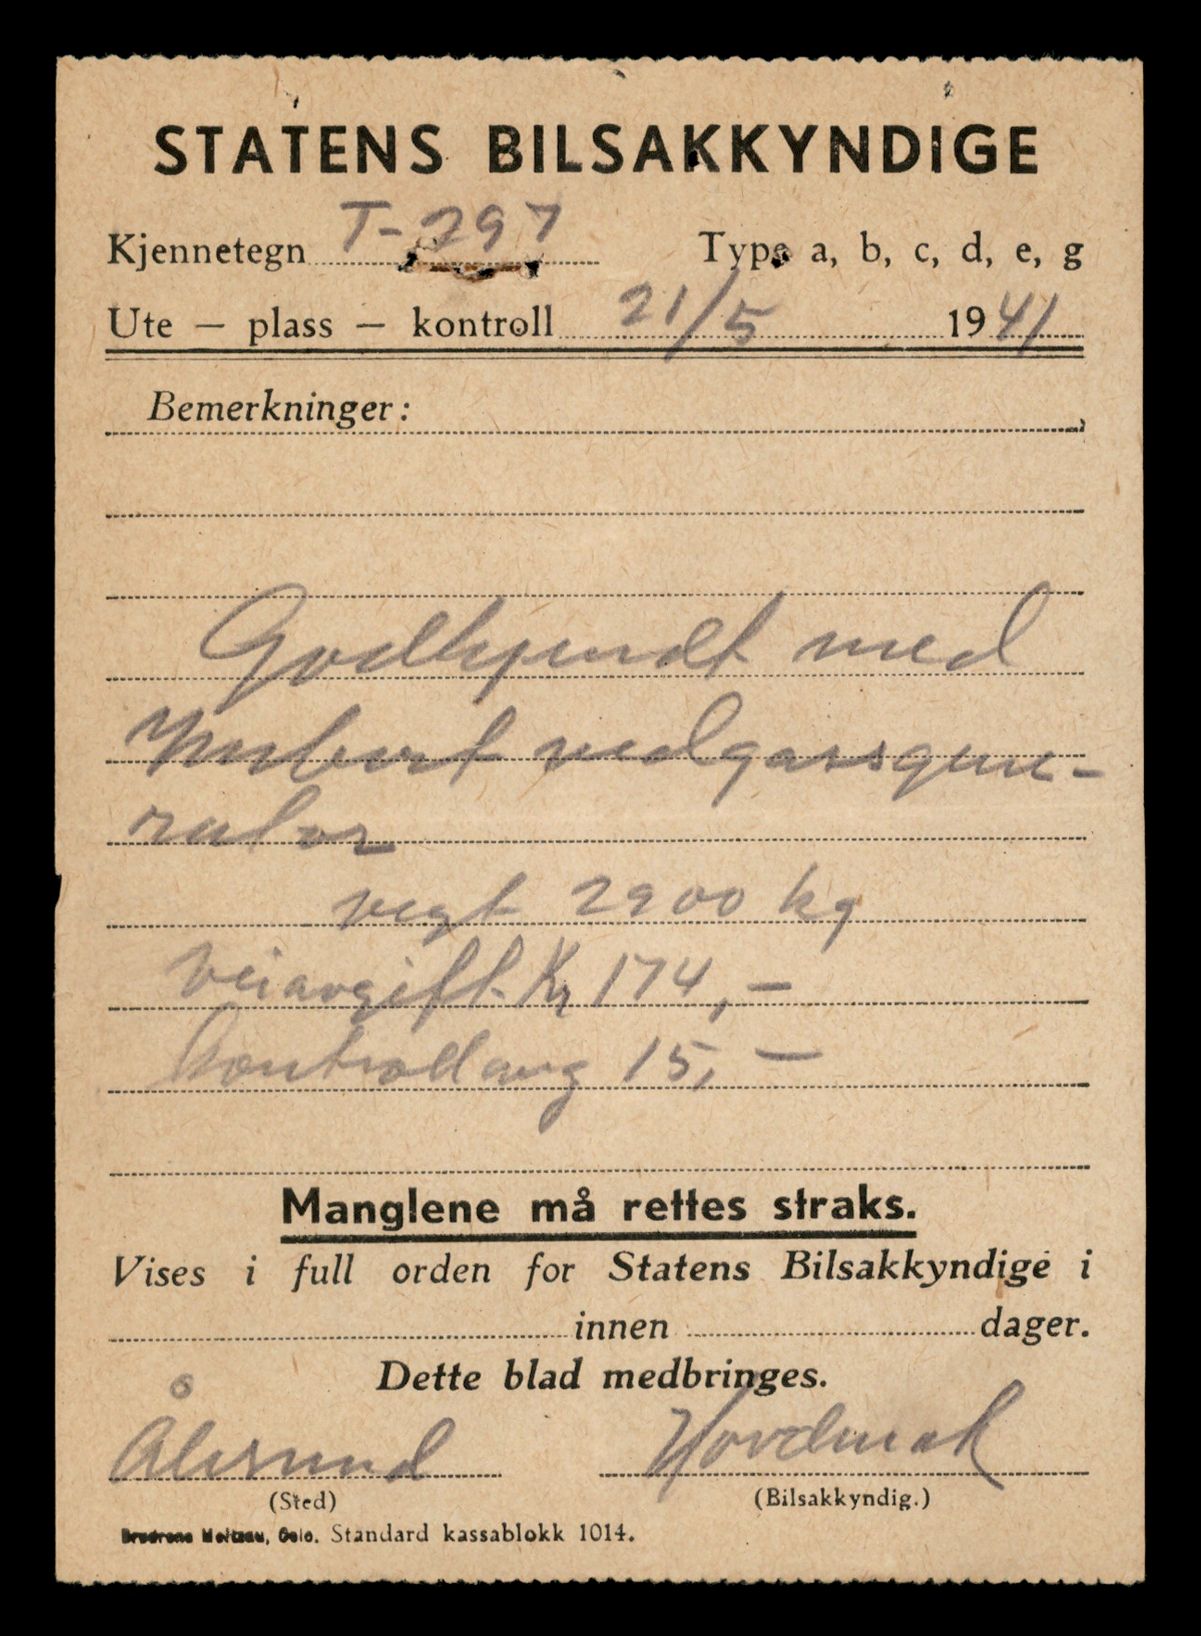 STATENS BILSAKKYNDIGE
Kjennetegn T-297 Type a, b, c, d, e, g
Ute — plass — kontroll 21/5 1941
Bemerkninger:
Godkjendt med
Imbert vedgassgene-
rator
vegt 2900 kg
Veiavgift Kr 174,—
Kontrollavg 15,—
Manglene må rettes straks.
Vises i full orden for Statens Bilsakkyndige i
innen dager.
Dette blad medbringes.
Ålesund
(Sted) (Bilsakkyndig.)
Brødrene Meltzau, Oslo. Standard kassablokk 1014.